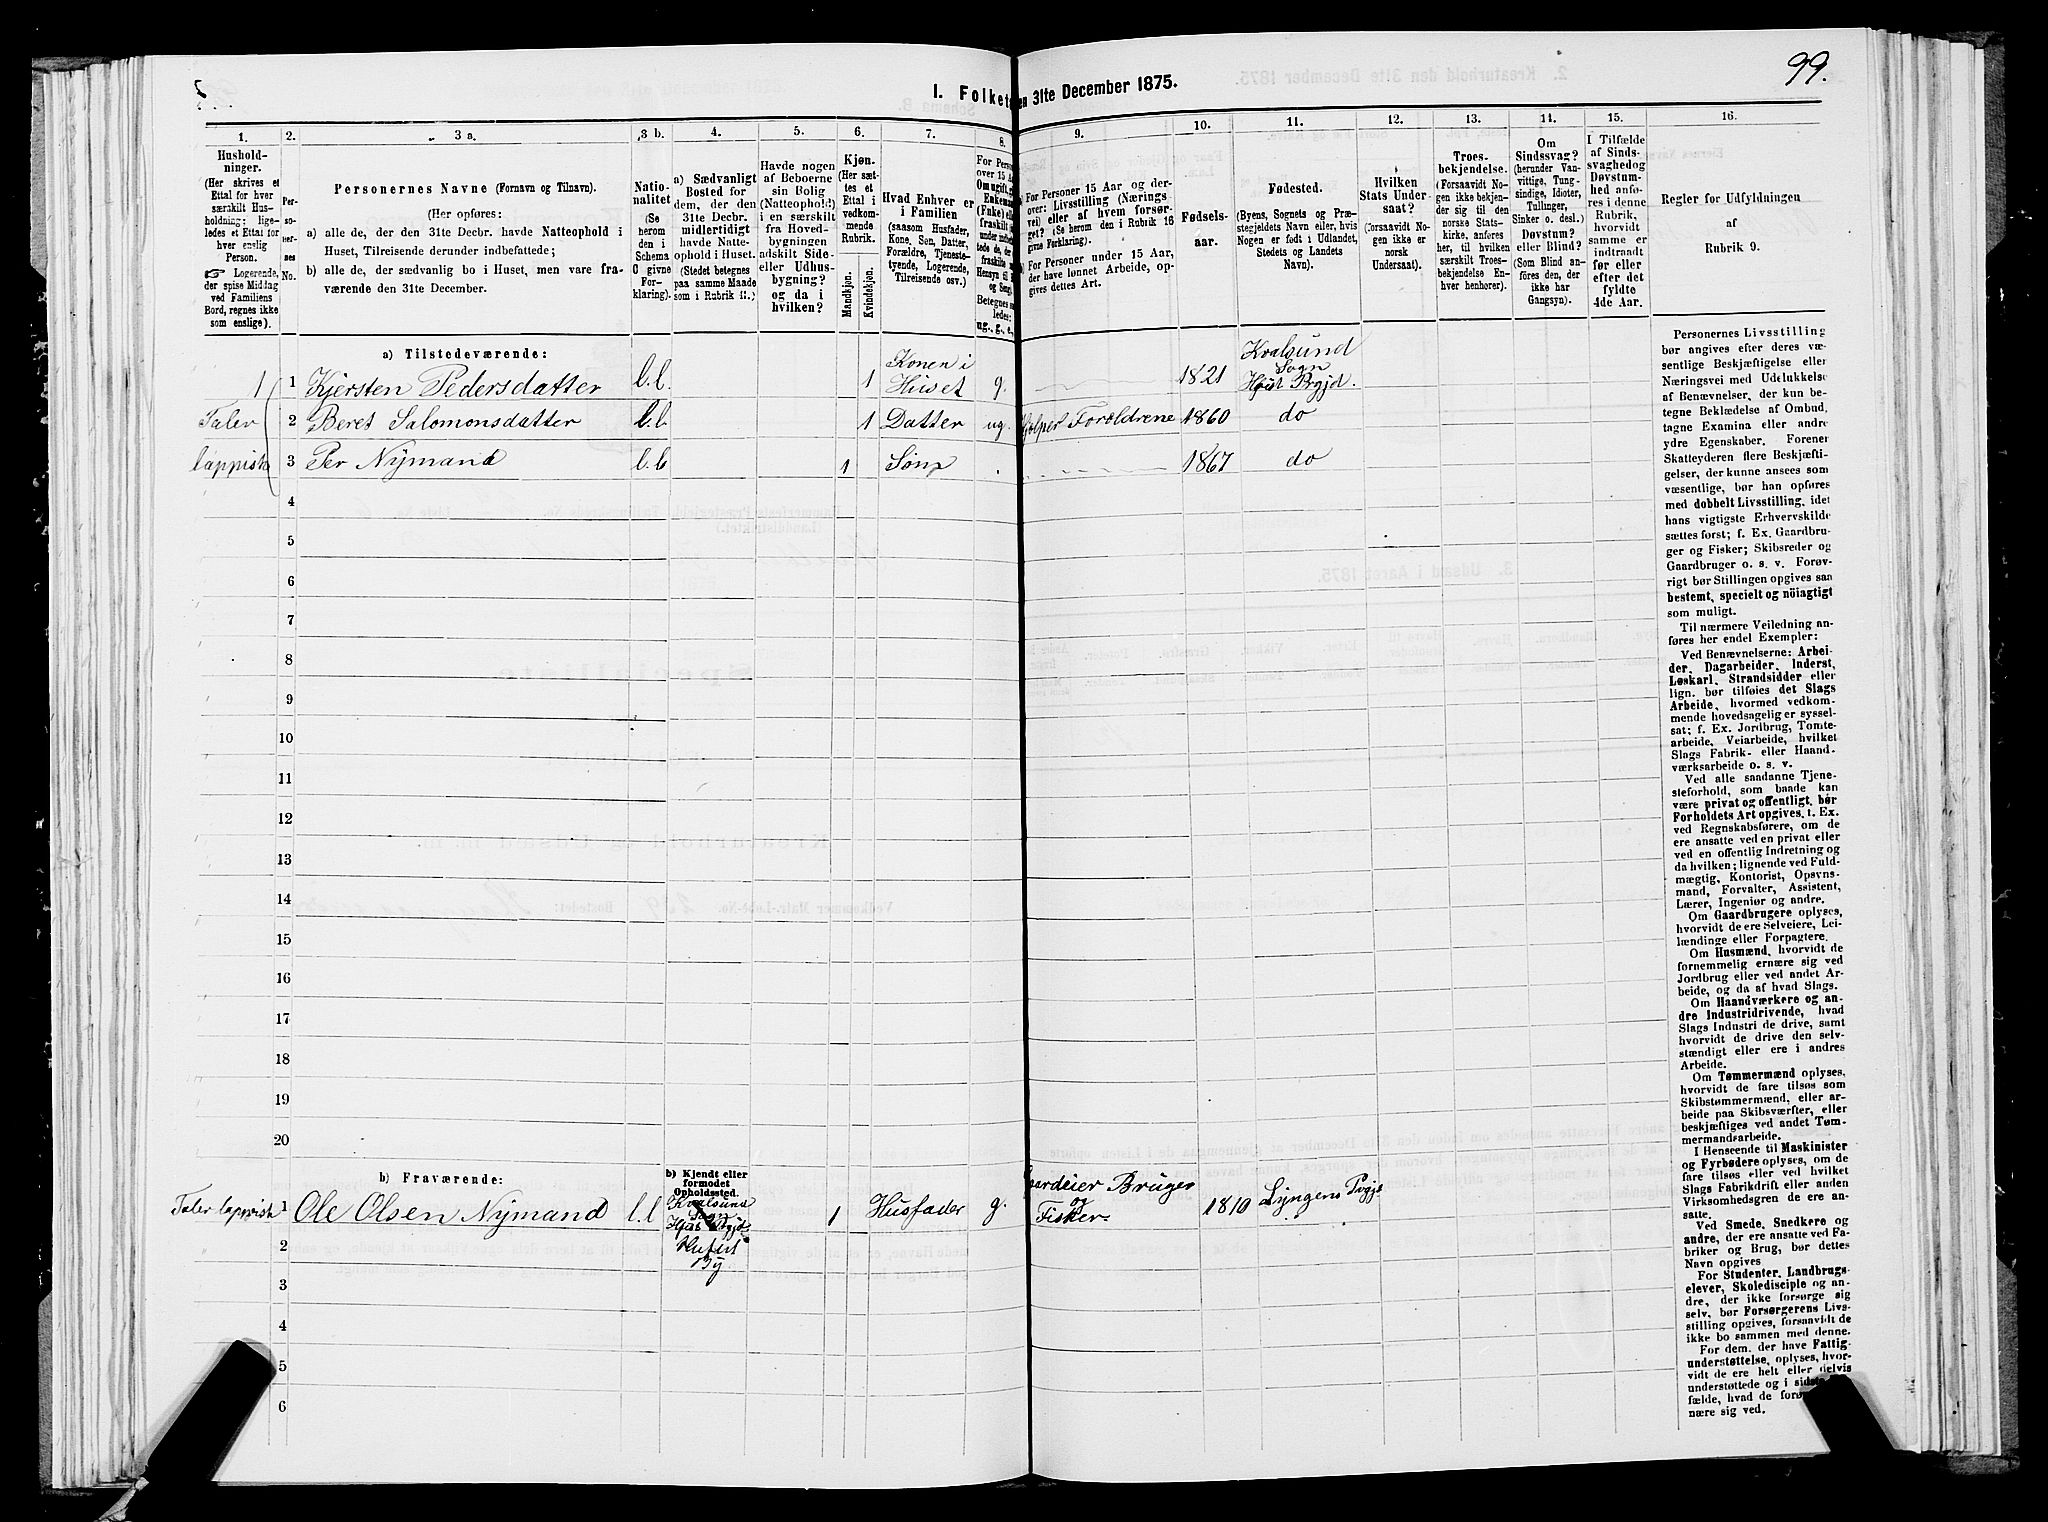 99.
I. Folketa en 31te December 1875.
1. 2. 3 a. 3 b. 4. 5. 6. 7. 8. 9. 10. 11. 12. 13. 14. 15. 16.
Hushold-
ninger.
(Her skrives et
Ettal for hver
særskilt Hus-
holdning; lige-
ledes et Ettal for
hver enslig
Person.
☞ Logerende,
der spise Middag
ved Familiens
Bord, regnes ikke
som enslige).
Personernes No.
Personernes Navne (Fornavn og Tilnavn).
(Her opføres:
a) alle de, der den 31te Decbr. havde Natteophold i
Huset, Tilreisende derunder indbefattede;
b) alle de, der sædvanlig bo i Huset, men vare fra-
værende den 31te December.
Natio-
nalitet
(Se
herom
den i
Schema
C givne
For-
klaring).
a) Sædvanligt
Bosted for
dem, der den
31te Decbr.
midlertidigt
havde Natte-
ophold i Huset.
(Stedet betegnes
paa samme Maade
som i Rubrik 11.)
Havde nogen
af Beboerne
sin Bolig
(Natteophold)
i en særskilt
fra Hoved-
bygningen
adskilt Side-
eller Udhus-
bygning?
og da i
hvilken?
Kjøn.
(Her sæt-
tes et
Ettal i
vedkom-
mende
Rubrik.
Mandkjøn.
Kvindekjøn.
Hvad Enhver er
i Familien
(saasom Husfader,
Kone, Søn, Datter,
Forældre, Tjeneste-
tyende, Logerende,
Tilreisende osv.)
For Person
over 15 Aa
Om ugift, gi
Enkeman
(Fnke) elle
fraskilt
Betegnes sa
ledes:
ug., g., e.,
For Personer 15 Aar og der-
over: Livsstilling (Nærings
vei) eller af hvem forsør-
get? (Se herom den i Rubrik 16
givne Forklaring).
For Personer under 15 Aar,
der have lønnet Arbeide, op-
gives dettes Art.
Fødsels-
aar.
Fødested.
(Byens, Sognets og Præ-
stegjeldets Navn eller, hvis
Nogen er født i Udlandet,
Stedets og Landets
Navn).
Hvilken
Stats Under-
saat?
(forsaavidt No-
gen ikke er
norsk
Undersaat).
Troes-
bekjendelse.
(Forsaavidt No-
gen ikke bekjen-
der sig til den
norske Stats-
kirke, anføres
her, til hvilken
særskilt Troes-
bekjendelse En-
hver henhorer).
Om
Sindssvag?
(herunder Van-
vittige, Tung-
sindige, Idioter,
Tullinger,
Sinker o. desl.)
Døvstum?
eller Blind?
(Som Blind an-
føres den, der
ikke har
Gangsyn).
I Tilfælde
af Sinds-
svaghed og
Døvstum-
hed anfø-
res i denne
Rubrik,
hvorvidt
samme er
indtraadt
før eller
efter det
fyldte
4de Aar.
Regler for Udfyldningen
af
Rubrik 9.
a) Tilstedeværende:
1 1 Kjersten Pedersdatter l.l. 1 Konen i Huset g. 1821 Kvalsund Sogn Hst Prgjd.
Taler 2 Beret Salomonsdatter l.l 1 Datter ug. Hjelper Foroldrene 1860 do
lappisk 3 Per Nymand l.l 1 Søn 1867 do
4
5
6
7
8
9
10
11
12
13
14
15
16
17
18
19
20
b) Fraværende:
b) Kjendt eller
formodet
Opholdssted.
Taler lappisk 1 Ole Olsen Nymand l.l Kvalsund Sogn Hst Prgjd. Hafst By 1 Husfader g. Gaardeier Bruger og Fisker 1810 Lyngens Prgjd
2
3
4
5
6
Personernes Livsstilling
bør angives efter deres væ-
sentlige Beskjæftigelse eller
Næringsvei med Udelukkelse
af Benævnelser, der kun be-
tegne Beklædelse af Ombud,
tagne Examina eller andre
ydre Egenskaber. Forener
Skatteyderen flere Beskjæfti-
gelser, der kunne ansees som
væsentlige, bør han opføres
med dobbelt Livsstilling, idet
hans vigtigste Erhvervskilde
sættes først; f. Ex. Gaardbru-
ger og Fisker; Skibsreder og
Gaardbruger o. s. v. Forøv-
rigt bør Stillingen opgives saa
bestemt, specielt og nöiagtigt
som muligt.
Til nærmere Veiledning an-
føres her endel Exempler:
Ved Benævnelserne: Arbei-
der, Dagarbeider, Inderst,
Løskarl, Strandsidder eller
lign. bør tilføies det Slags
Arbeide, hvormed vedkom-
mende hovedsagelig er syssel-
sat; f. Ex. Jordbrug, Tomte-
arbeide, Veiarbeide, hvilket
Slags Fabrik- eller Haand-
værksarbeide o. s. v.
Ved alle saadanne Tjene-
steforhold, som baade kan
være privat og offentligt, bør
Forholdets Art opgives, t. Ex.
ved Regnskabsførere, om de
ere ansatte ved en privat eller
ved en offentlig Indretning og
da hvilken; lignende ved Fuld-
mægtig, Kontorist, Opsyns-
mand, Forvalter, Assistent,
Lærer, Ingeniør og andre.
Om Gaardbrugere oplyses,
hvorvidt de ere Selveiere, Lei-
lændinge eller Forpagtere.
Om Husmænd, hvorvidt de
fornemmelig ernære sig ved
Jordbrug eller ved andet Ar-
beide, og da af hvad Slags.
Om Haandværkere og an-
dre Industridrivende, hvad
Slags Industri de drive, samt
hvorvidt de drive den selv-
stændigt eller ere i andres
Arbeide.
Om Tømmermænd oplyses,
hvorvidt de fare tilsøs som
Skibstømmermænd, eller ar-
beide paa Skibsværfter, eller
beskjæftiges ved andet Tøm-
mermandsarbeide.
I Henseende til Maskinister
og Fyrbødere oplyses, om de
fare tilsøs eller ved hvilket
Slags Fabrikdrift eller anden
Virksomhedsgren de ere an-
satte.
Ved Smede, Snedkere og
andre, der ere ansatte ved Fa-
briker og Brug, bør dettes
Navn opgives
For Studenter, Landbrugs-
elever, Skoledisciple og an-
dre, der ikke forsørge sig
selv, bør Forsørgerens Livs-
stilling opgives, forsaavidt de
ikke bo sammen med denne.
For dem, der have Fattig-
understøttelse, oplyses, hvor-
vidt de ere helt eller delvis
understøttede og i sidste
fælde, hvad de forø
nære sig ved.